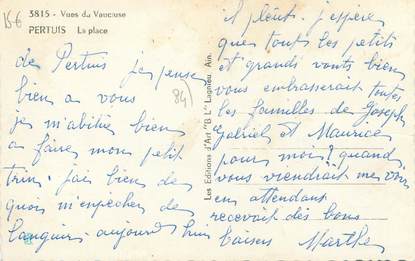 15 €
3815 - Vues du Vaucluse
PERTUIS La place
de Pertuis je pense
bien a vous
je m'abitue bien
a faire mon petit
train. j'ai bien de
quoi m'enpecher de
languir. aujourd hui
84)
Les Editions d'Art "B L" Lagnieu Ain.
il pleut. j'espère
que tout les petits
et grands vonts bien
vous embrasserait toutes
les familles de Joseph
Gabriel et Maurice
pour moi? quand
vous viendrait me voir
en attendant
recevait des bons
baisers Marthe